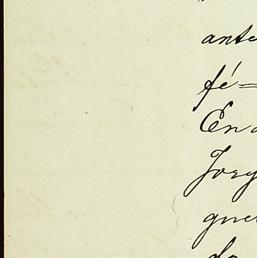 ante
fé=
En
Jorg
gue
do